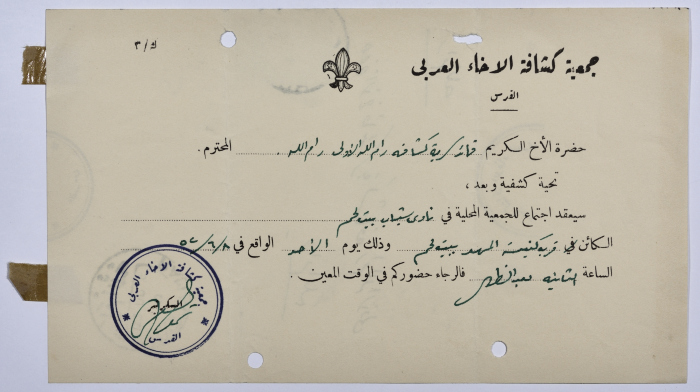 ك/٣
جمعية كشافة الاخاء العربي
القدس
حضرة الأخ الكريم قائد سرية كشافة رام الله الاولى رام الله المحترم.
تحية كشفية وبعد ،
سيعقد اجتماع للجمعية المحلية في نادي شباب بيت لحم
الكائن في قرب كنيسة المهد بيت لحم وذلك يوم الأحد الواقع في ٨/٦/٥٢
الساعة الثانية بعد الظهر فالرجاء حضوركم في الوقت المعين .
جمعية كشافة الاخاء العربي
السكرتير
القدس